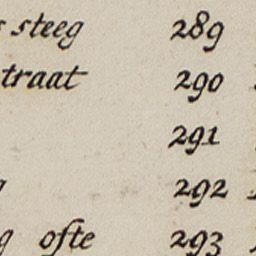 steeg 289
traat 290
291
292
g ofte 293